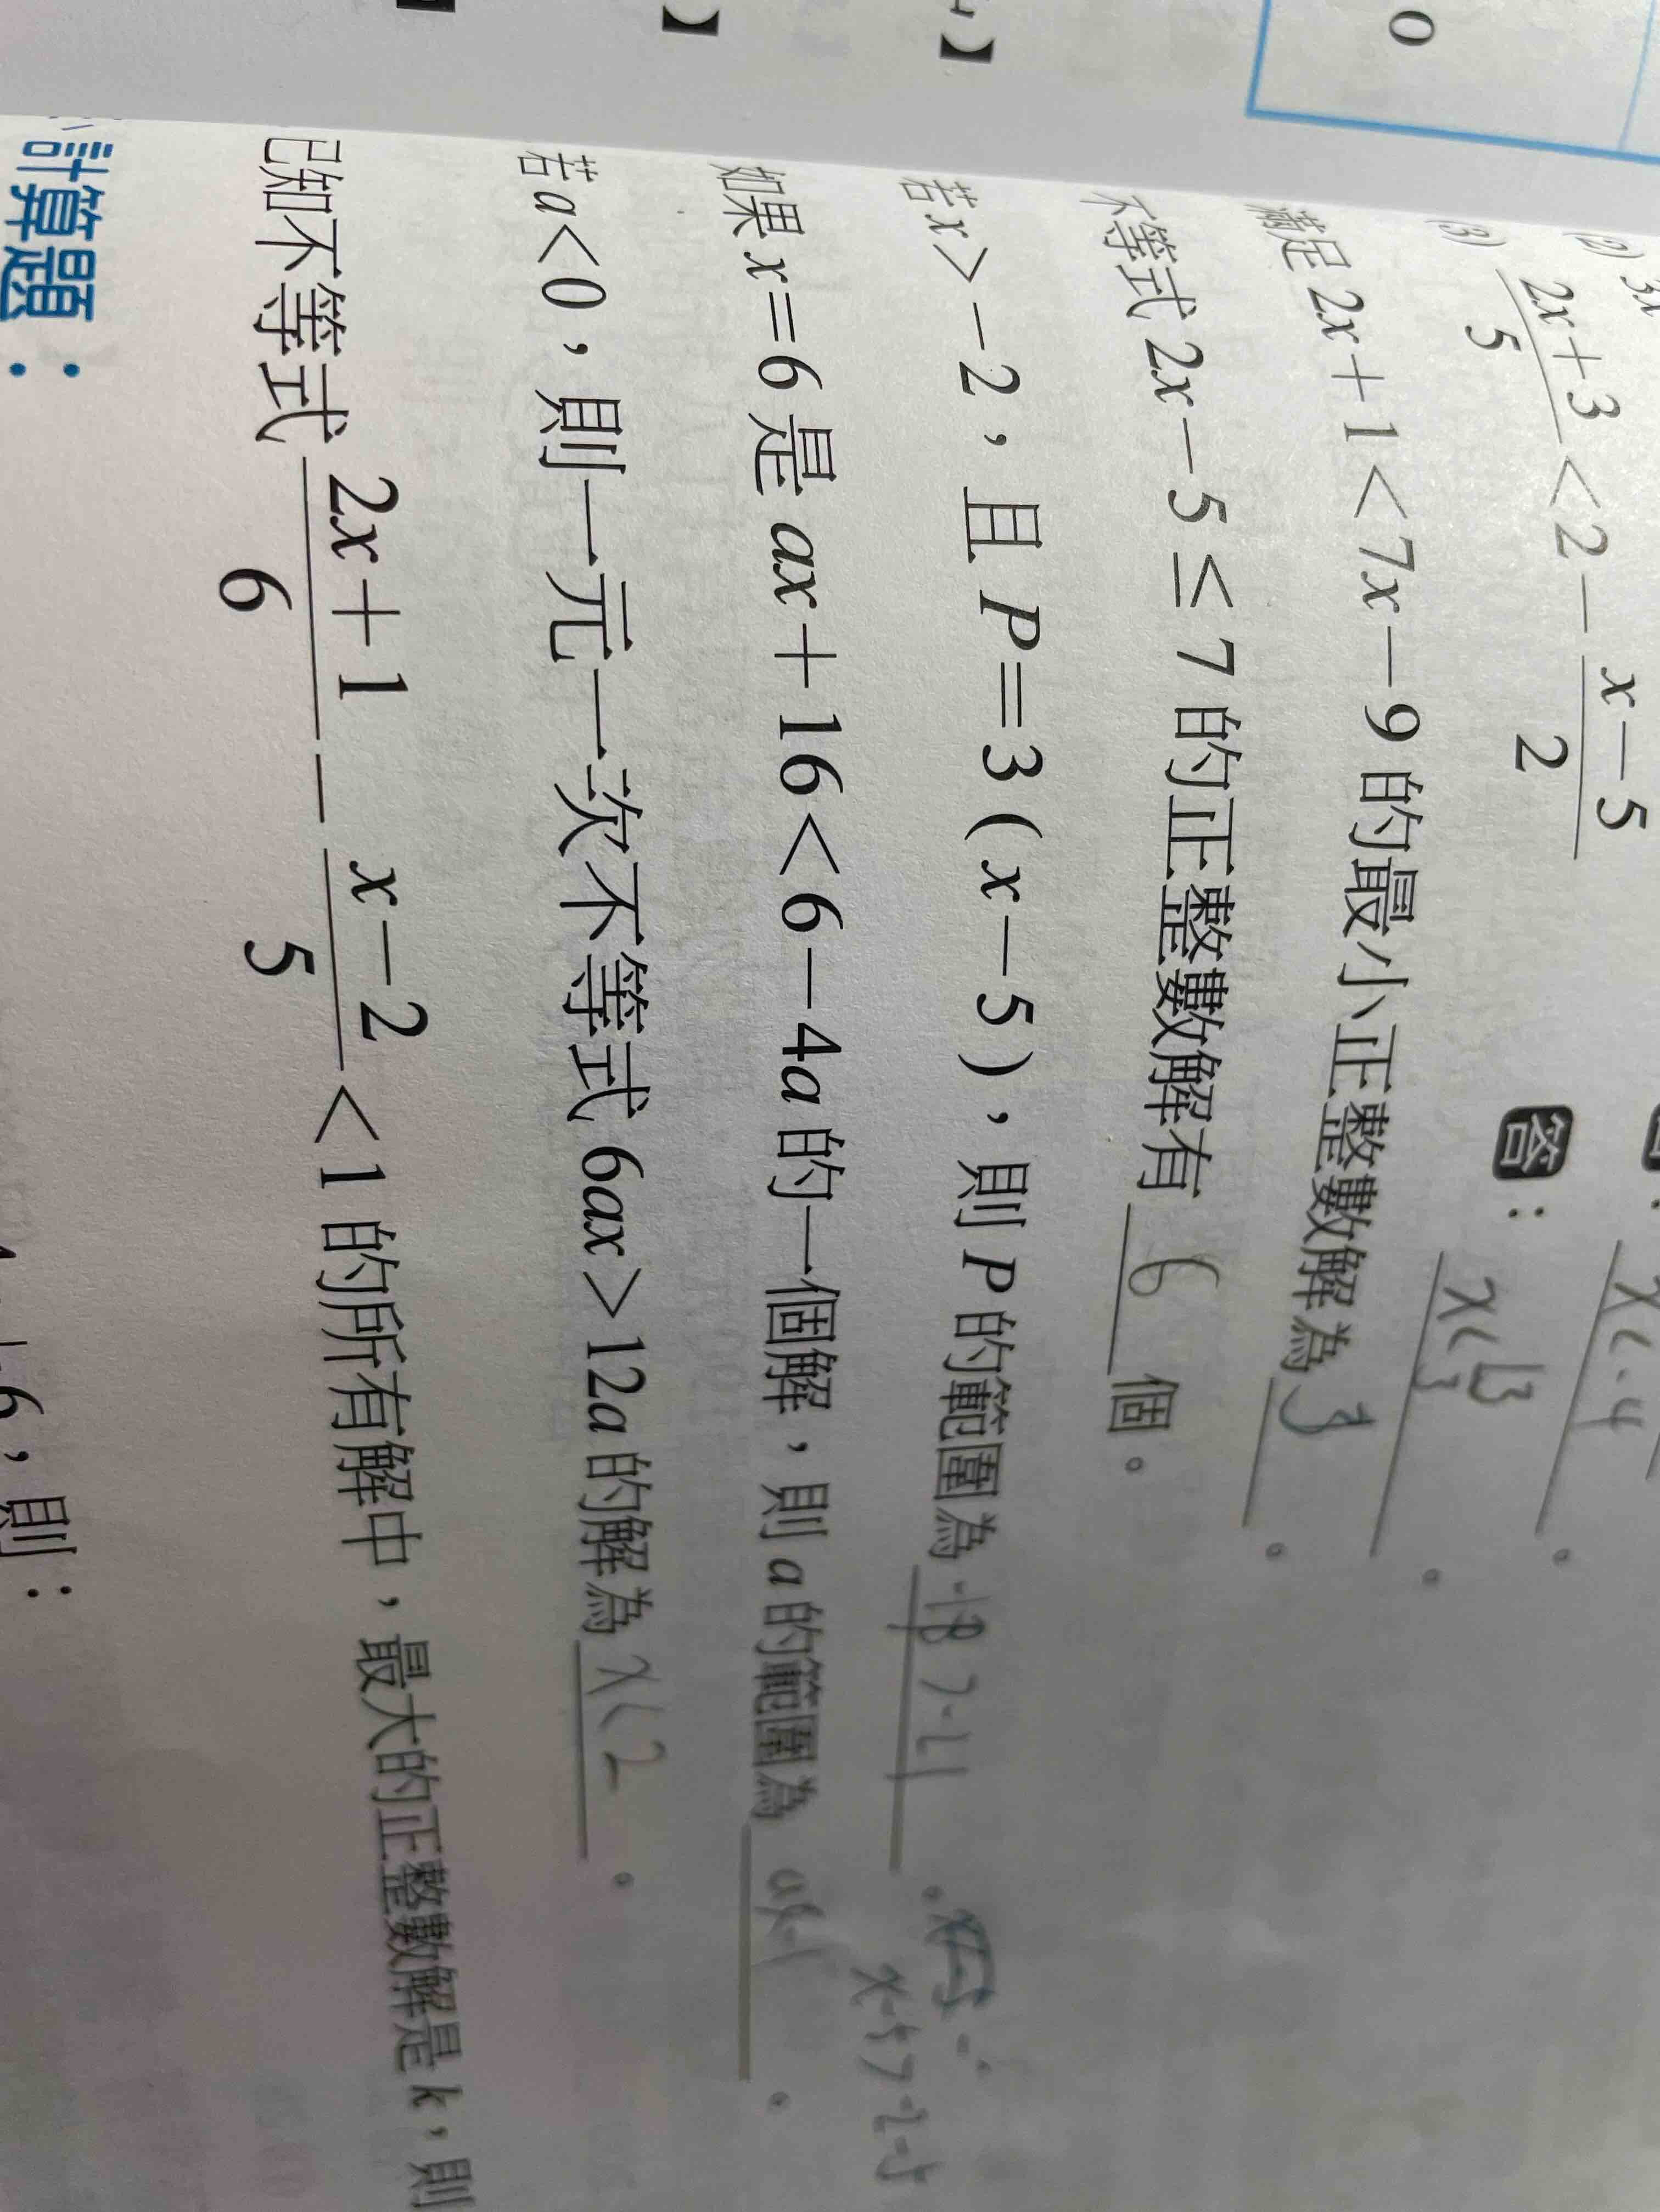 0
】
】
(2) 3x
x<-4
(3) \frac{2x+3}{5}<2-\frac{x-5}{2}
答：x<\frac{13}{3}。
滿足2x+1<7x-9的最小正整數解為3。
不等式2x-5≤7的正整數解有6個。
若x>-2，且P=3(x-5)，則P的範圍為 >-21。
x-5>-2-5
如果x=6是ax+16<6-4a的一個解，則a的範圍為a<-1。
若a<0，則一元一次不等式6ax>12a的解為x<2。
已知不等式\frac{2x+1}{6}-\frac{x-2}{5}<1的所有解中，最大的正整數解是k，則
計算題：
+6，則：